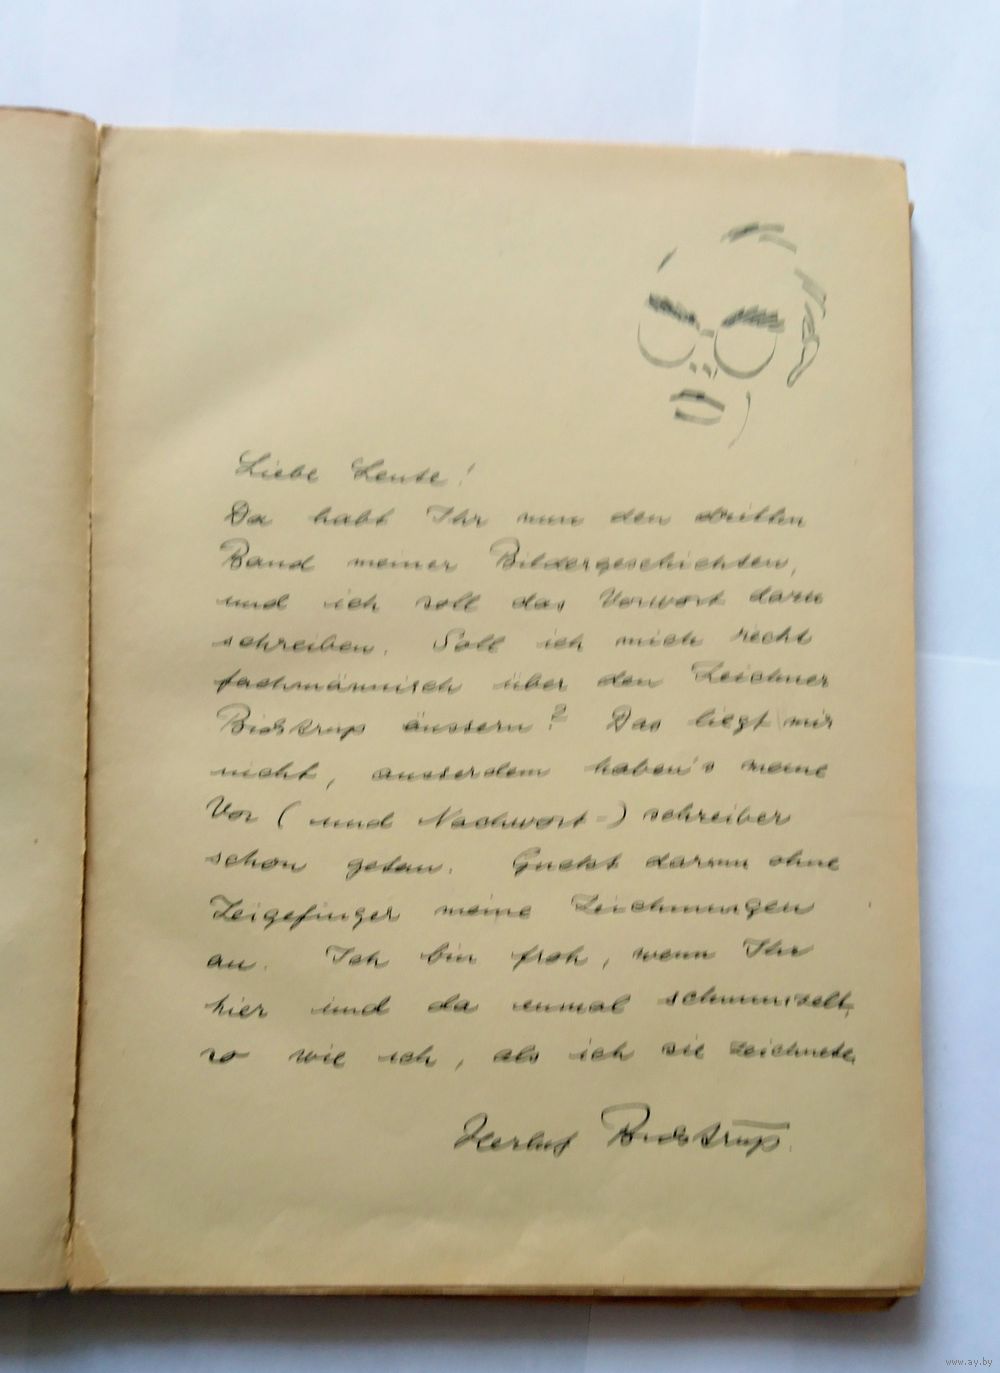 Liebe Leute!
Da habt Ihr nun den dritten
Band meiner Bildergeschichten,
und ich soll das Vorwort dazu
schreiben. Soll ich mich recht
fachmännisch über den Zeichner
Bidstrup äussern? Das liegt mir
nicht, ausserdem haben's meine
Vor (und Nachwort-) schreiber
schon getan. Guckt darum ohne
Zeigefinger meine Zeichnungen
an. Ich bin froh, wenn Ihr
hier und da einmal schmunzelt,
so wie ich, als ich sie zeichnete.
Herluf Bidstrup.
www.ay.by